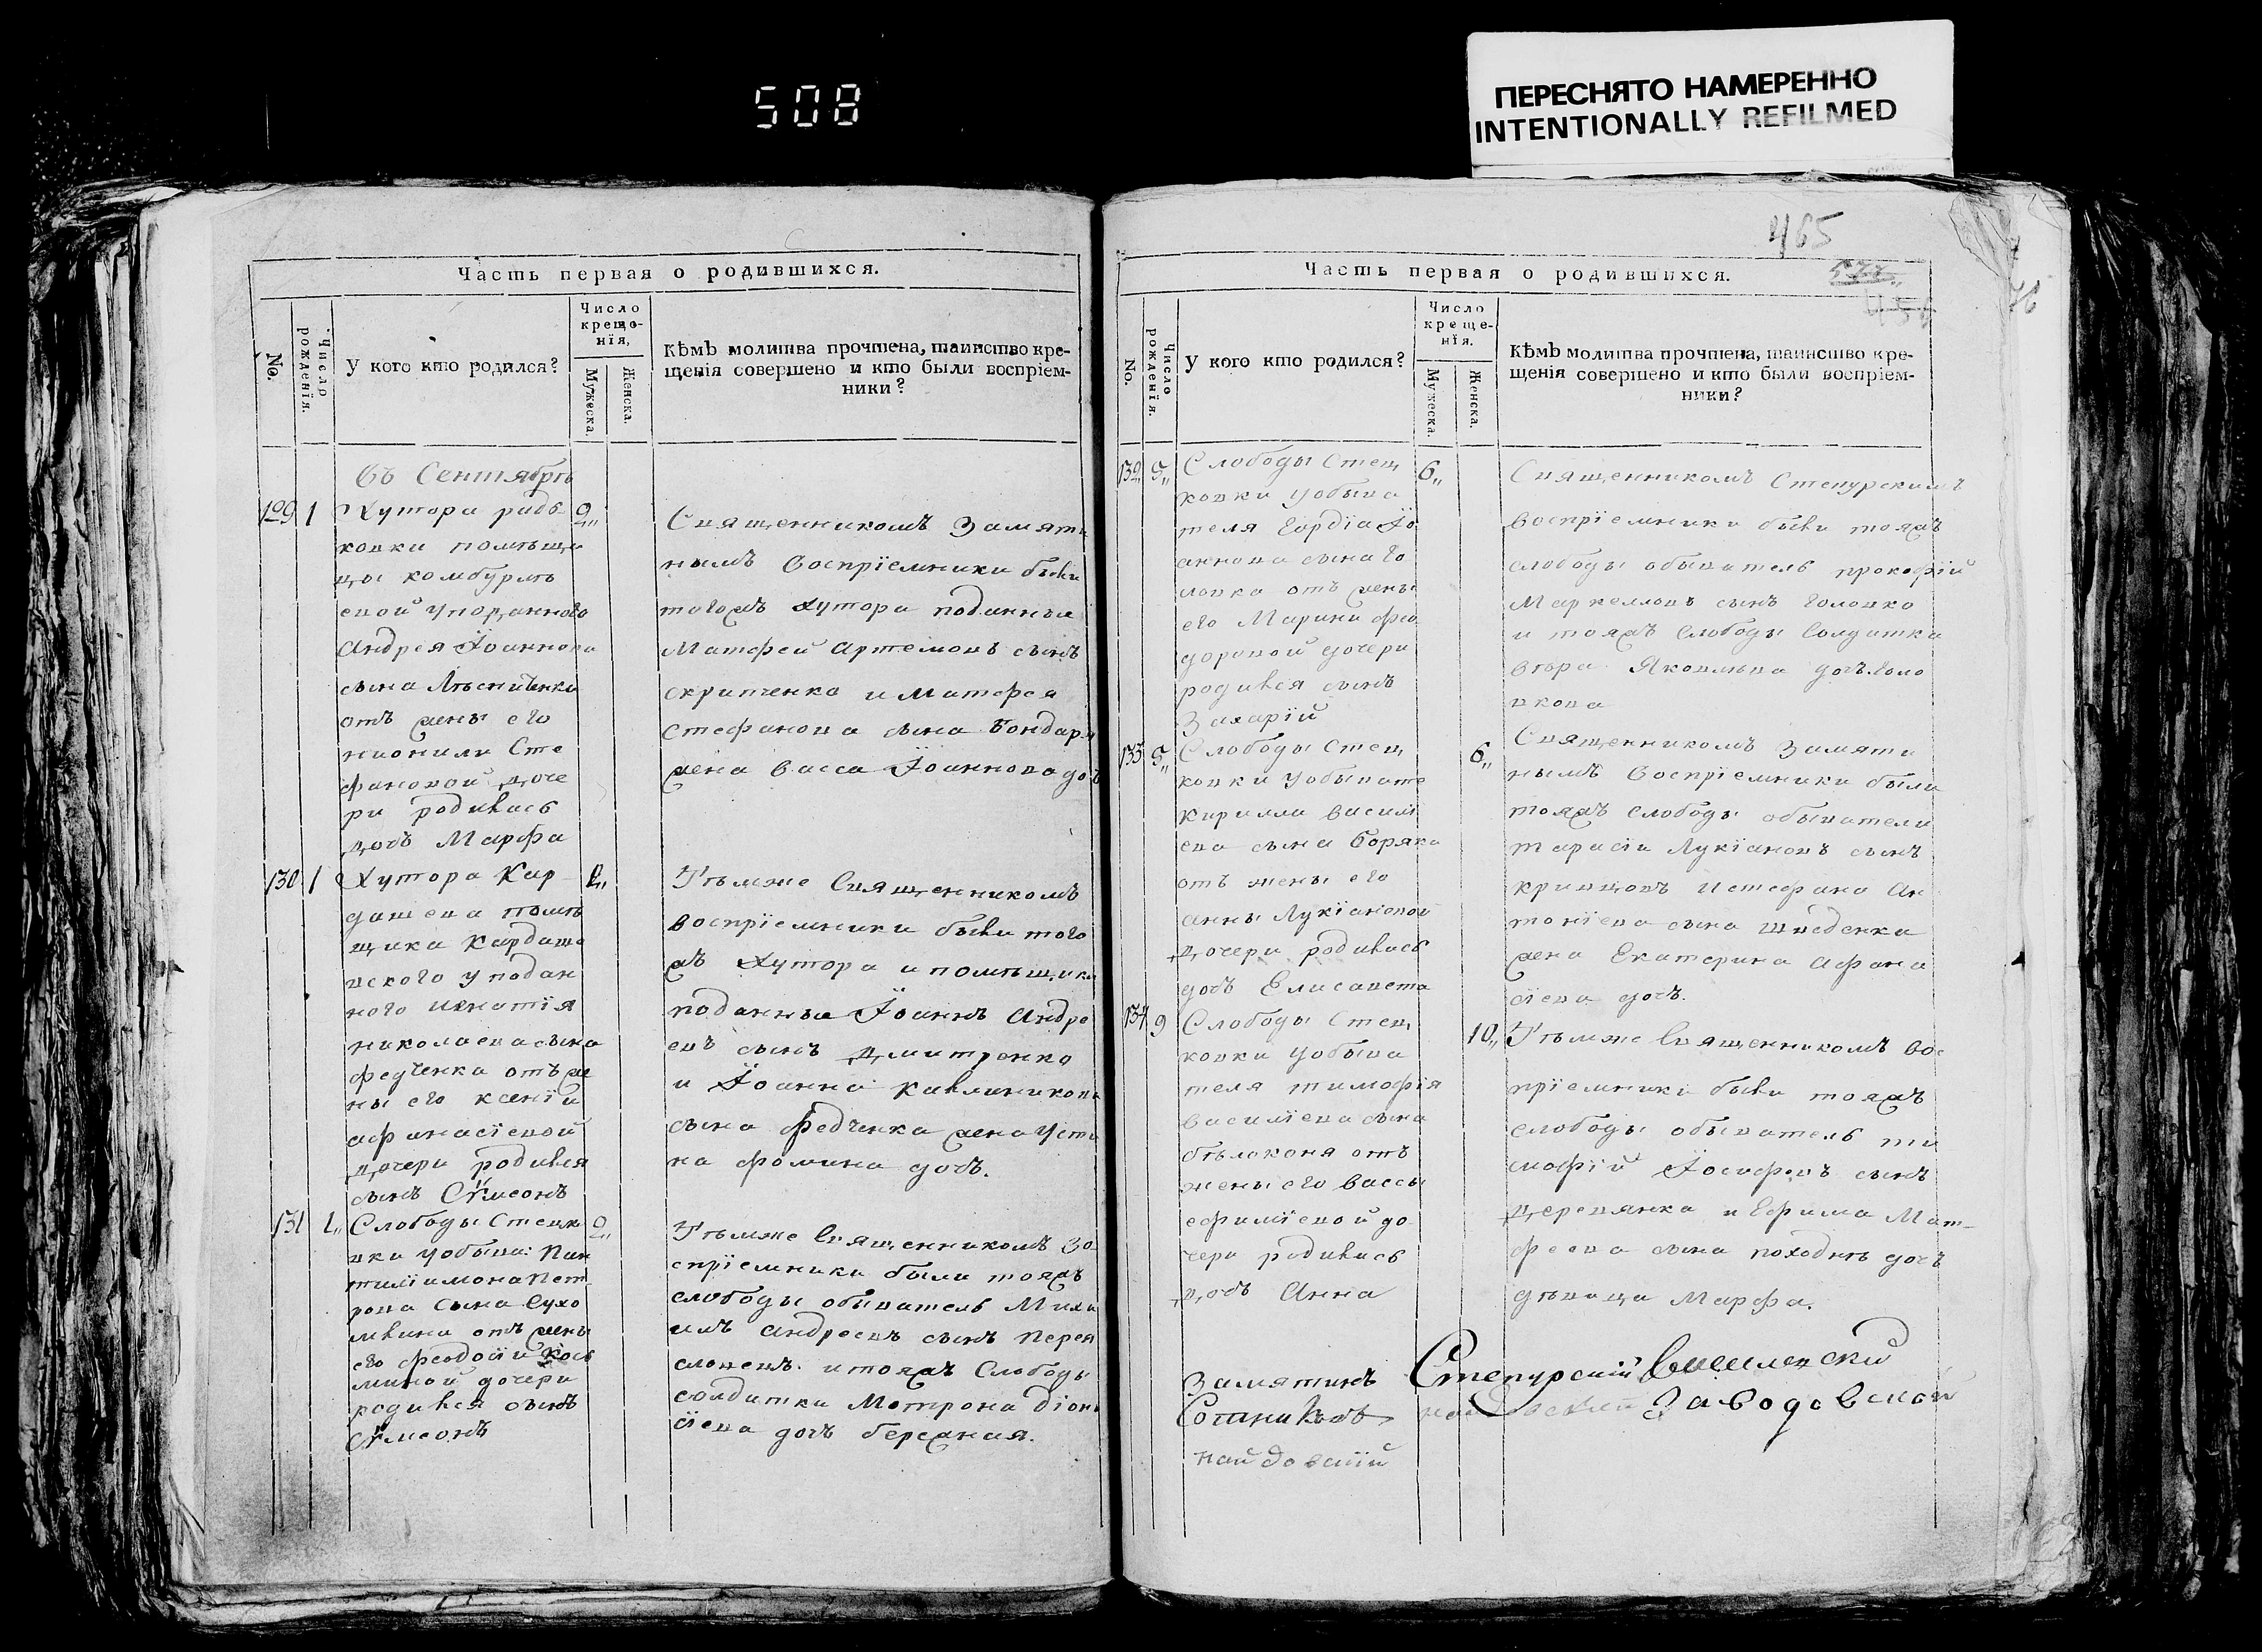 508
ПЕРЕСНЯТО НАМЕРЕННО
INTENTIONALLY REFILMED
Часть первая о родившихся.
No.
Число рожденія.
У кого кто родился?
Число креще-
нія.
Мужеска.
Женска.
Кѣмъ молитва прочтена, таинство кре-
щенія совершено и кто были воспріем-
ники?
Въ Сентябрѣ
129 1 Хутора
ковки помѣщи
цы
Андрея Іоаннова
сына
отъ жены его
Сте
фановой доче
ри родилась
дочь Марфа
2
Священникомъ Замяти
нымъ Воспріемники были
тогожъ хутора поданные
Матфей Артемовъ сынъ
и Матфея
Стефанова сына Бондаря
жена Васса Іоаннова доч
130 1 Хутора Кар
дашева помѣ
щика Кардаше
вского у подан
ного Игнатія
николаева сына
федченка отъ же
ны его ксеніи
афанасіевой
дочери родился
сынъ Сѵмеонъ
2
Тѣмже Священникомъ
воспріемники были того
жъ хутора и помѣщика
поданные Іоаннъ Андре
евъ сынъ Дмитренко
и Іоанна
сына федченка жена Усти
на фомина дочь.
131 Слободы Стецко
вки Пан
тилимона Пет
рова сына Сухо
отъ жены
его феодосіи
миной дочери
родился сынъ
Сѵмеонъ
2
Тѣмже Священникомъ Во
спріемники были тояжъ
слободы обыватель Миха
илъ Андреевъ сынъ
и тояжъ Слободы
солдатка Мотрона Діони
сіева дочь бережная.
465
Часть первая о родившихся.
No.
Число рожденія.
У кого кто родился?
Число креще-
нія.
Мужеска.
Женска.
Кѣмъ молитва прочтена, таинство кре-
щенія совершено и кто были воспріем-
ники?
132 5 Слободы Стец
ковки уобыва
теля Гордіа Іо
аннова сына Го
ловка отъ жены
его Марини фео
доровой дочери
родился сынъ
Захарій
6
Священникомъ Степурскимъ
воспріемники были тояжъ
слободы обыватель прокофій
Маркелловъ сынъ Головко
и тояжъ Слободы Солдатка
Яковлева дочь Голо
вкова
133 5 Слободы Стец
ковки уобывате
Кирилла Василі
ева сына Боряка
отъ жены его
анны Лукіановой
дочери родилась
дочь Елисавета
6
Священникомъ Замяти
нымъ Воспріемники были
тояжъ слободы обыватели
Тарасій Лукіановъ сынъ
кривцовъ и стефана Ан
тоніева сына шведенка
жена Екатерина Афана
сіева дочь.
134 9 Слободы Стец
ковки уобыва
теля тимофія
Василіева сына
бѣлоконя отъ
жены его Вассы
ефиміевой до
чери родилась
дочь Анна
10
Тѣмже Священникомъ Вос
пріемники были тояжъ
слободы обыватель ти
мофій Іосифовъ сынъ
Деревянка и Ефима Мат
феева сына дочь
дѣвица Марфа.
Замятинъ Степурскій
Сотниковъ Заводовской